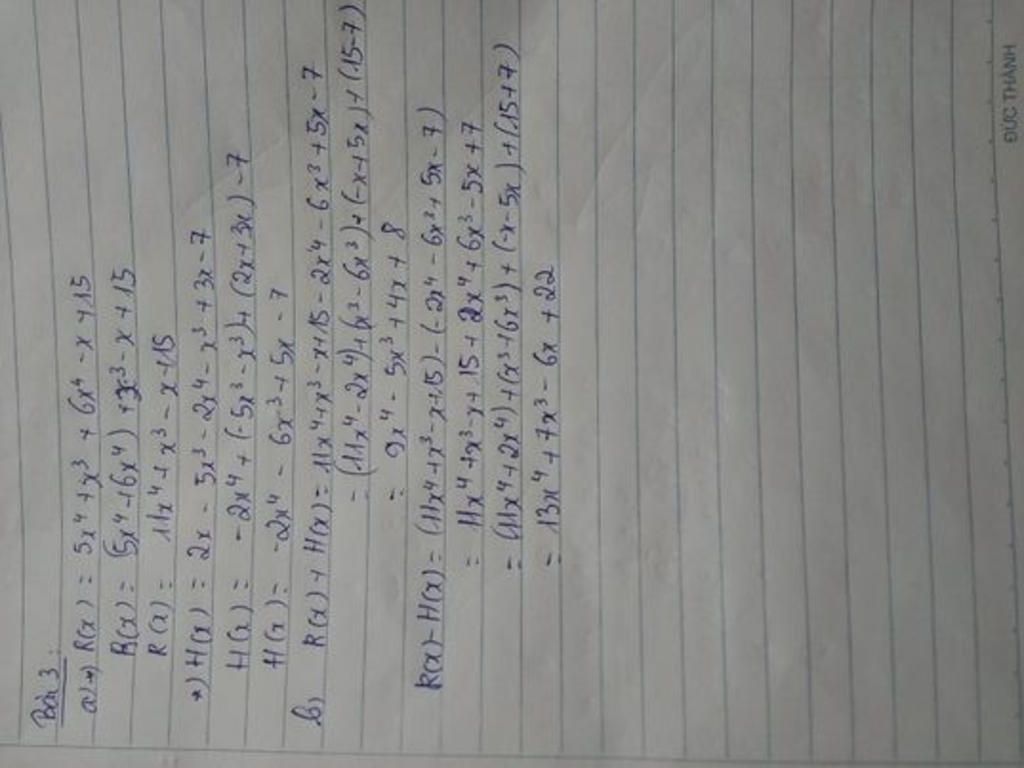 Bài 3:
a) *) R(x) = 5x⁴ + x³ + 6x⁴ - x + 15
R(x) = (5x⁴ + 6x⁴) + x³ - x + 15
R(x) = 11x⁴ + x³ - x + 15
*) H(x) = 2x - 5x³ - 2x⁴ - x³ + 3x - 7
H(x) = -2x⁴ + (-5x³ - x³) + (2x + 3x) - 7
H(x) = -2x⁴ - 6x³ + 5x - 7
b) R(x) + H(x) = 11x⁴ + x³ - x + 15 - 2x⁴ - 6x³ + 5x - 7
= (11x⁴ - 2x⁴) + (x³ - 6x³) + (-x + 5x) + (15 - 7)
= 9x⁴ - 5x³ + 4x + 8
R(x) - H(x) = (11x⁴ + x³ - x + 15) - (-2x⁴ - 6x³ + 5x - 7)
= 11x⁴ + x³ - x + 15 + 2x⁴ + 6x³ - 5x + 7
= (11x⁴ + 2x⁴) + (x³ + 6x³) + (-x - 5x) + (15 + 7)
= 13x⁴ + 7x³ - 6x + 22
ĐỨC THÀNH